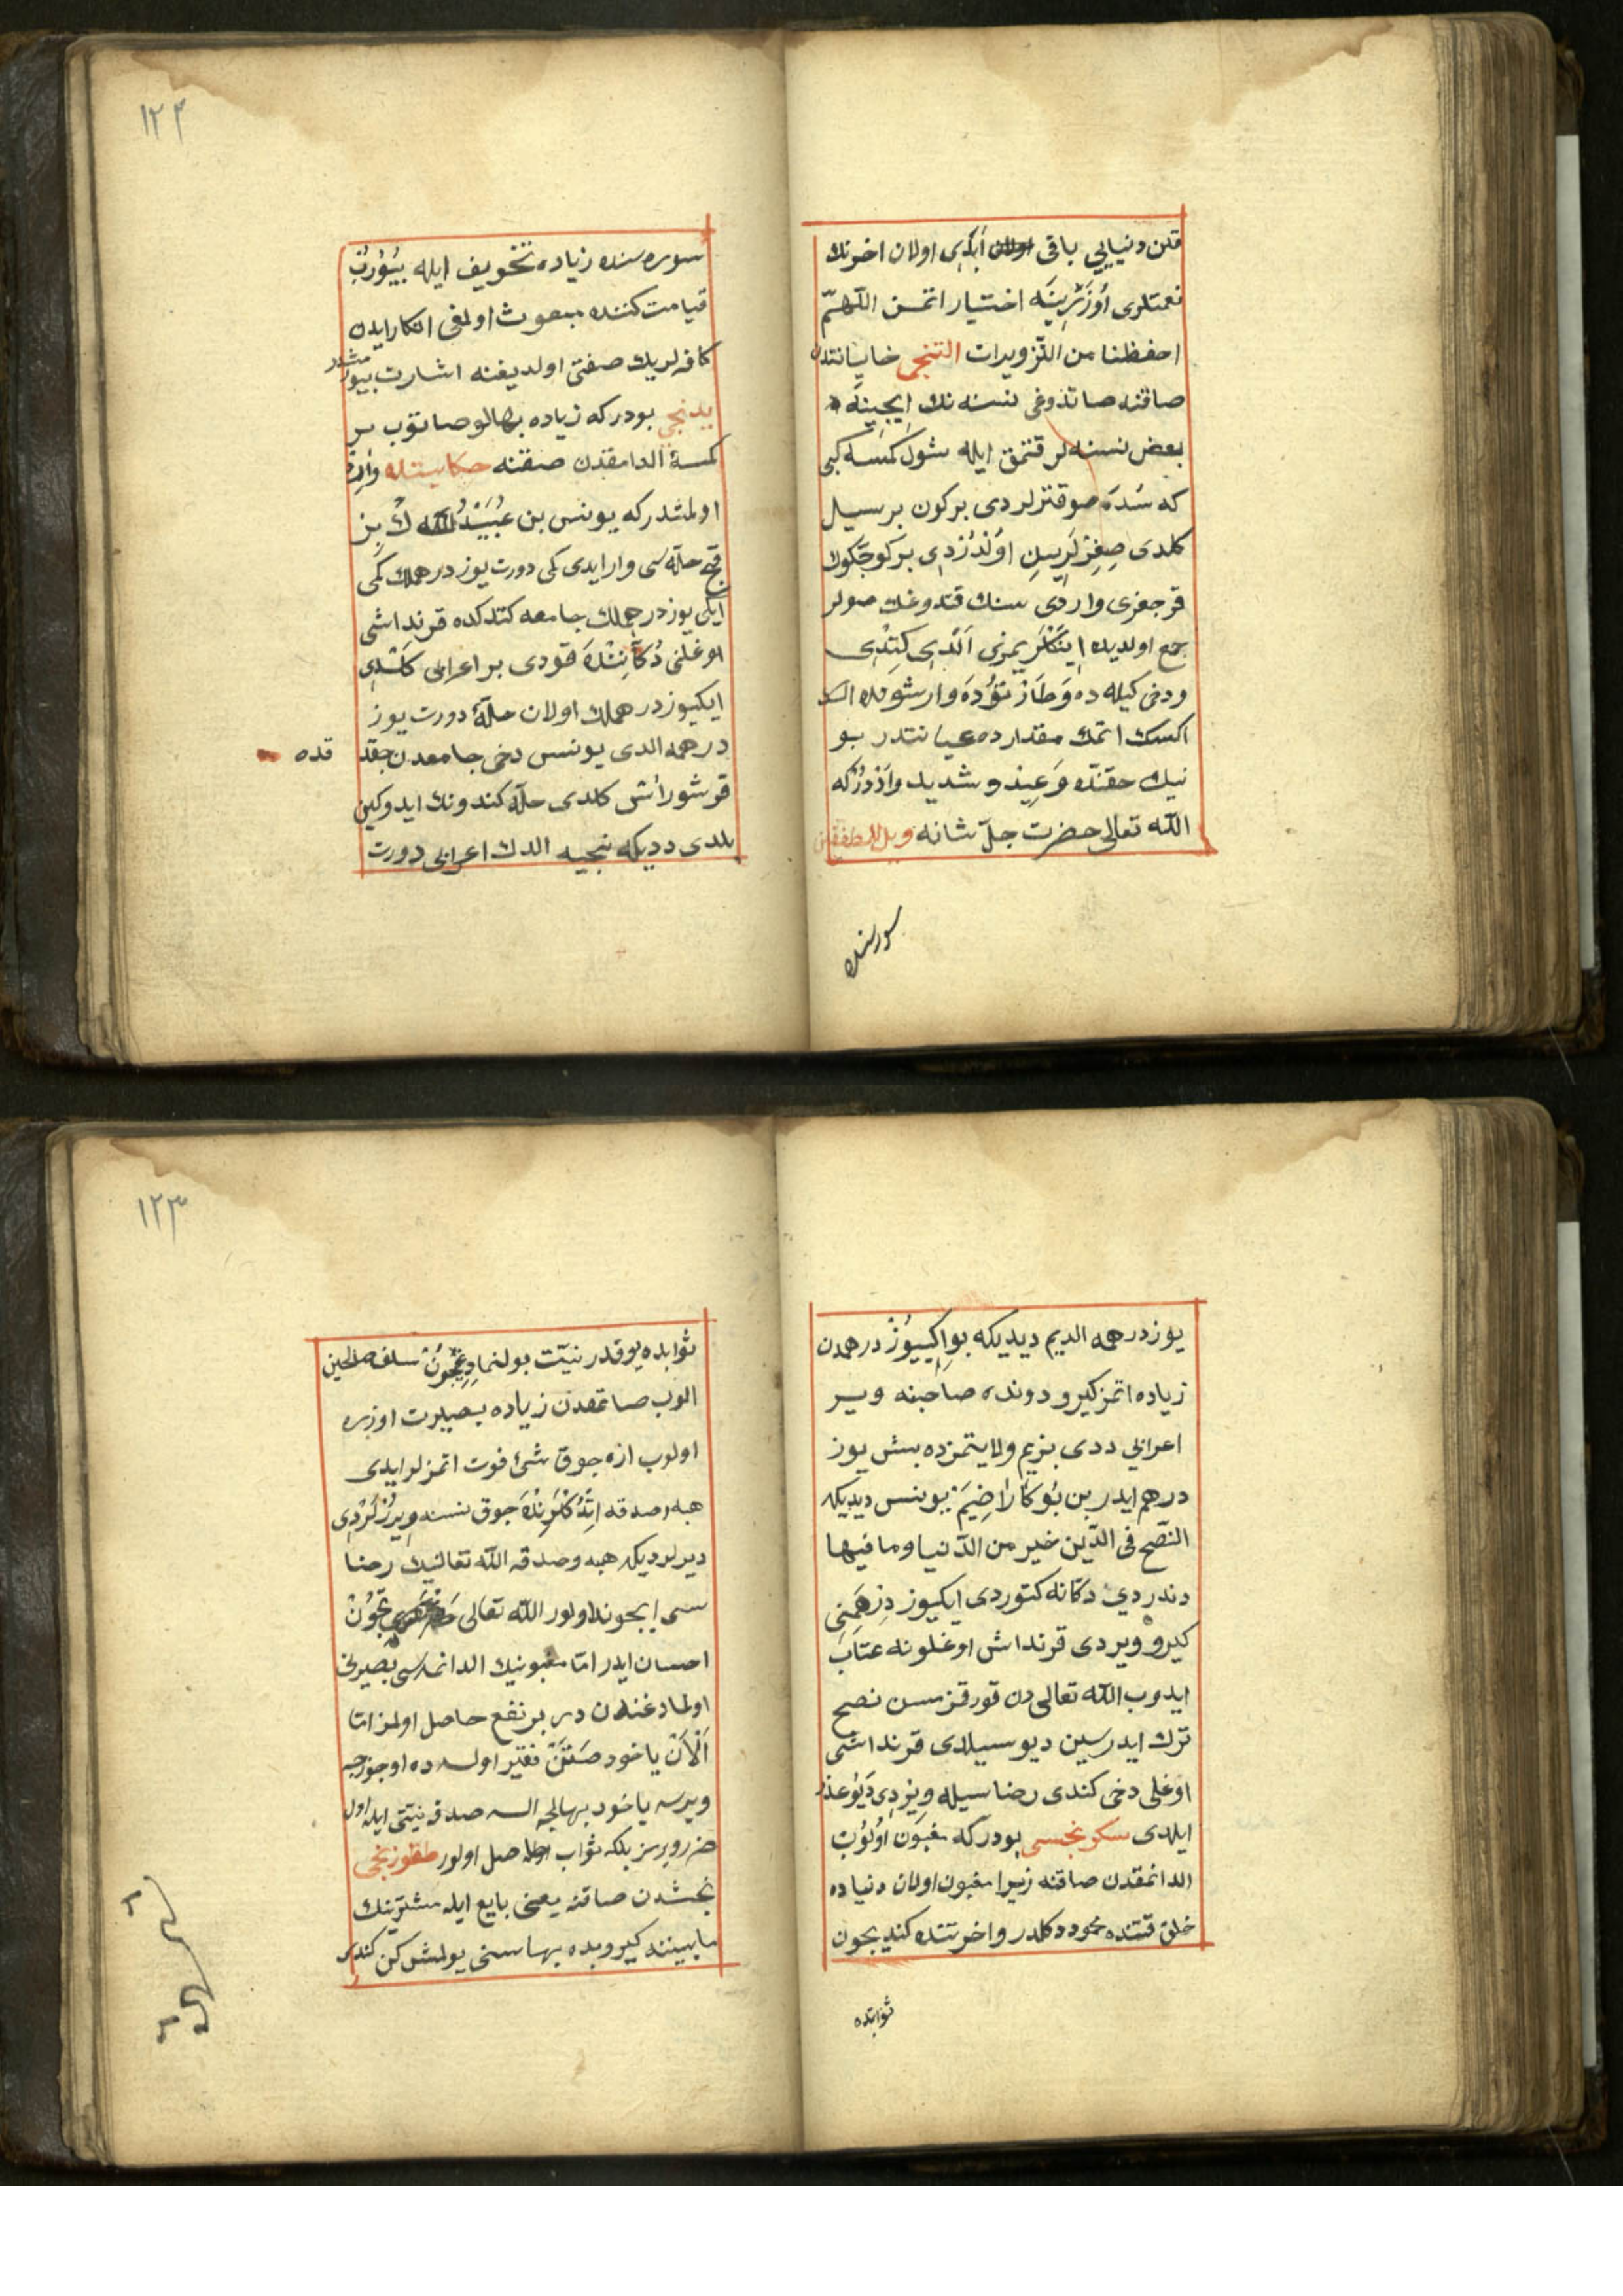 قلن دنیایی باقی اولان ابدی اولان اخرتك
نعمتلری اوزرینه اختیار اتمسن اللّهمّ
احفظنا من التزویرات التنجی خایانتدن
صاقنه صاتدوغی نسنه نك ایچینه
بعض نسنه لر قتمق ایله شول كمسه كبی
كه سدَه صو قترلردی بركون بر سیل
كلدی صغرلرین اوندردی بر كوجكوك
قزجغزی واردی سنك قتدوغك صولر
جمع اولدیلر اینكلریمزی الدی كتدی
ودخی كیله ده وطازتوده وارشونده
اكسك اتمك مقدارده عیانتدر بو
نیك حقنده وعید و شدید واردركه
الله تعالی حضرت جلّ شانه ویل للمطففین
سورسنده
١٢٢
سوره سنده زیاده تخویف ایله بیورب
قیامت كننده مبعوث اولمغی انكار ایدن
كافرلریك صفتی اولدیغنه اشارت بیورمشدر
یدنجی بودركه زیاده بهالو صاتوب بر
كمسۀ الدامقدن صقنه حكایتده وارد
اولمشدركه یونس بن عبید الله ك بز
قچ حلّه سی وار ایدی كمی دورت یوز درهملك كمی
ایكی یوز درهملك جامعه كتدكده قرنداشی
اوغلنی دكاننده قودی بر اعرابی كلدی
ایكیوز درهملك اولان حلّۀ دورت یوز
درهمه الدی یونس دخی جامعدن چقد قده
قرشو راش كلدی حلّه كندونك ایدوكین
بلدی ددیكه نیجیه الدك اعرابی دورت
یوز درهمه الدیم دیدیكه بو ایكییوز درهمدن
زیاده اتمز كیرو دونده صاحبنه ویر
اعرابی ددی بزیم ولایتمزده بش یوز
درهم ایدر بن بوكا راضیم یونس دیدیكه
النّصح فی الدّین خیر من الدّنیا وما فیها
دندردی دكانه كتوردی ایكیوز درهمنی
كیرو ویردی قرنداش اوغلونه عتاب
ایدوب الله تعالی دن قورقزمسن نصح
ترك ایدرسین دیو سیلدی قرنداشی
اوغلی دخی كندی رضاسیله ویردی دیو عذر
ایلدی سكزنجسی بودركه مغبون اولوب
الدانمقدن صاقنه زیرا مغبون اولان دنیاده
خلق قتنده محمود دكلدر واخرتنده كندیچون
ثوابده
١٢٣
ثوابده یوقدر نیّت بولنمادغیچون سلف صالحین
الوب صاتمقدن زیاده بصیرت اوزره
اولوب ازه جوق شئ فوت اتمزلر ایدی
هبه وصدقه اتدكلرنده جوق نسنه ویررلردی
دیرلردیكه هبه وصدقه الله تعالنیك رضا
سی ایجوندر اولور الله تعالی
احسان ایدر امّا مغبونیك الدانمه سی بصیرتی
اولمادغندن در بر نفع حاصل اولمز امّا
الان یاخود صتن فقیر اولسه ده اوجوزجه
ویرسه یاخود بهالجه السه صدقه نیّتی ایله اول
ضرر ویرمز بلكه ثواب حاصل اولور طقوزنجی
نجشدن صاقنه یعنی بایع ایله مشترینك
مابیننده كیروبده بهاسنی بولمش كن كندی